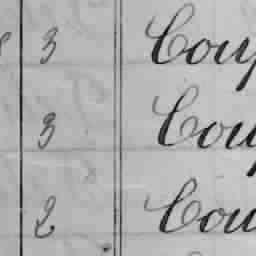 3 Coup
3 Cou
2 Cou